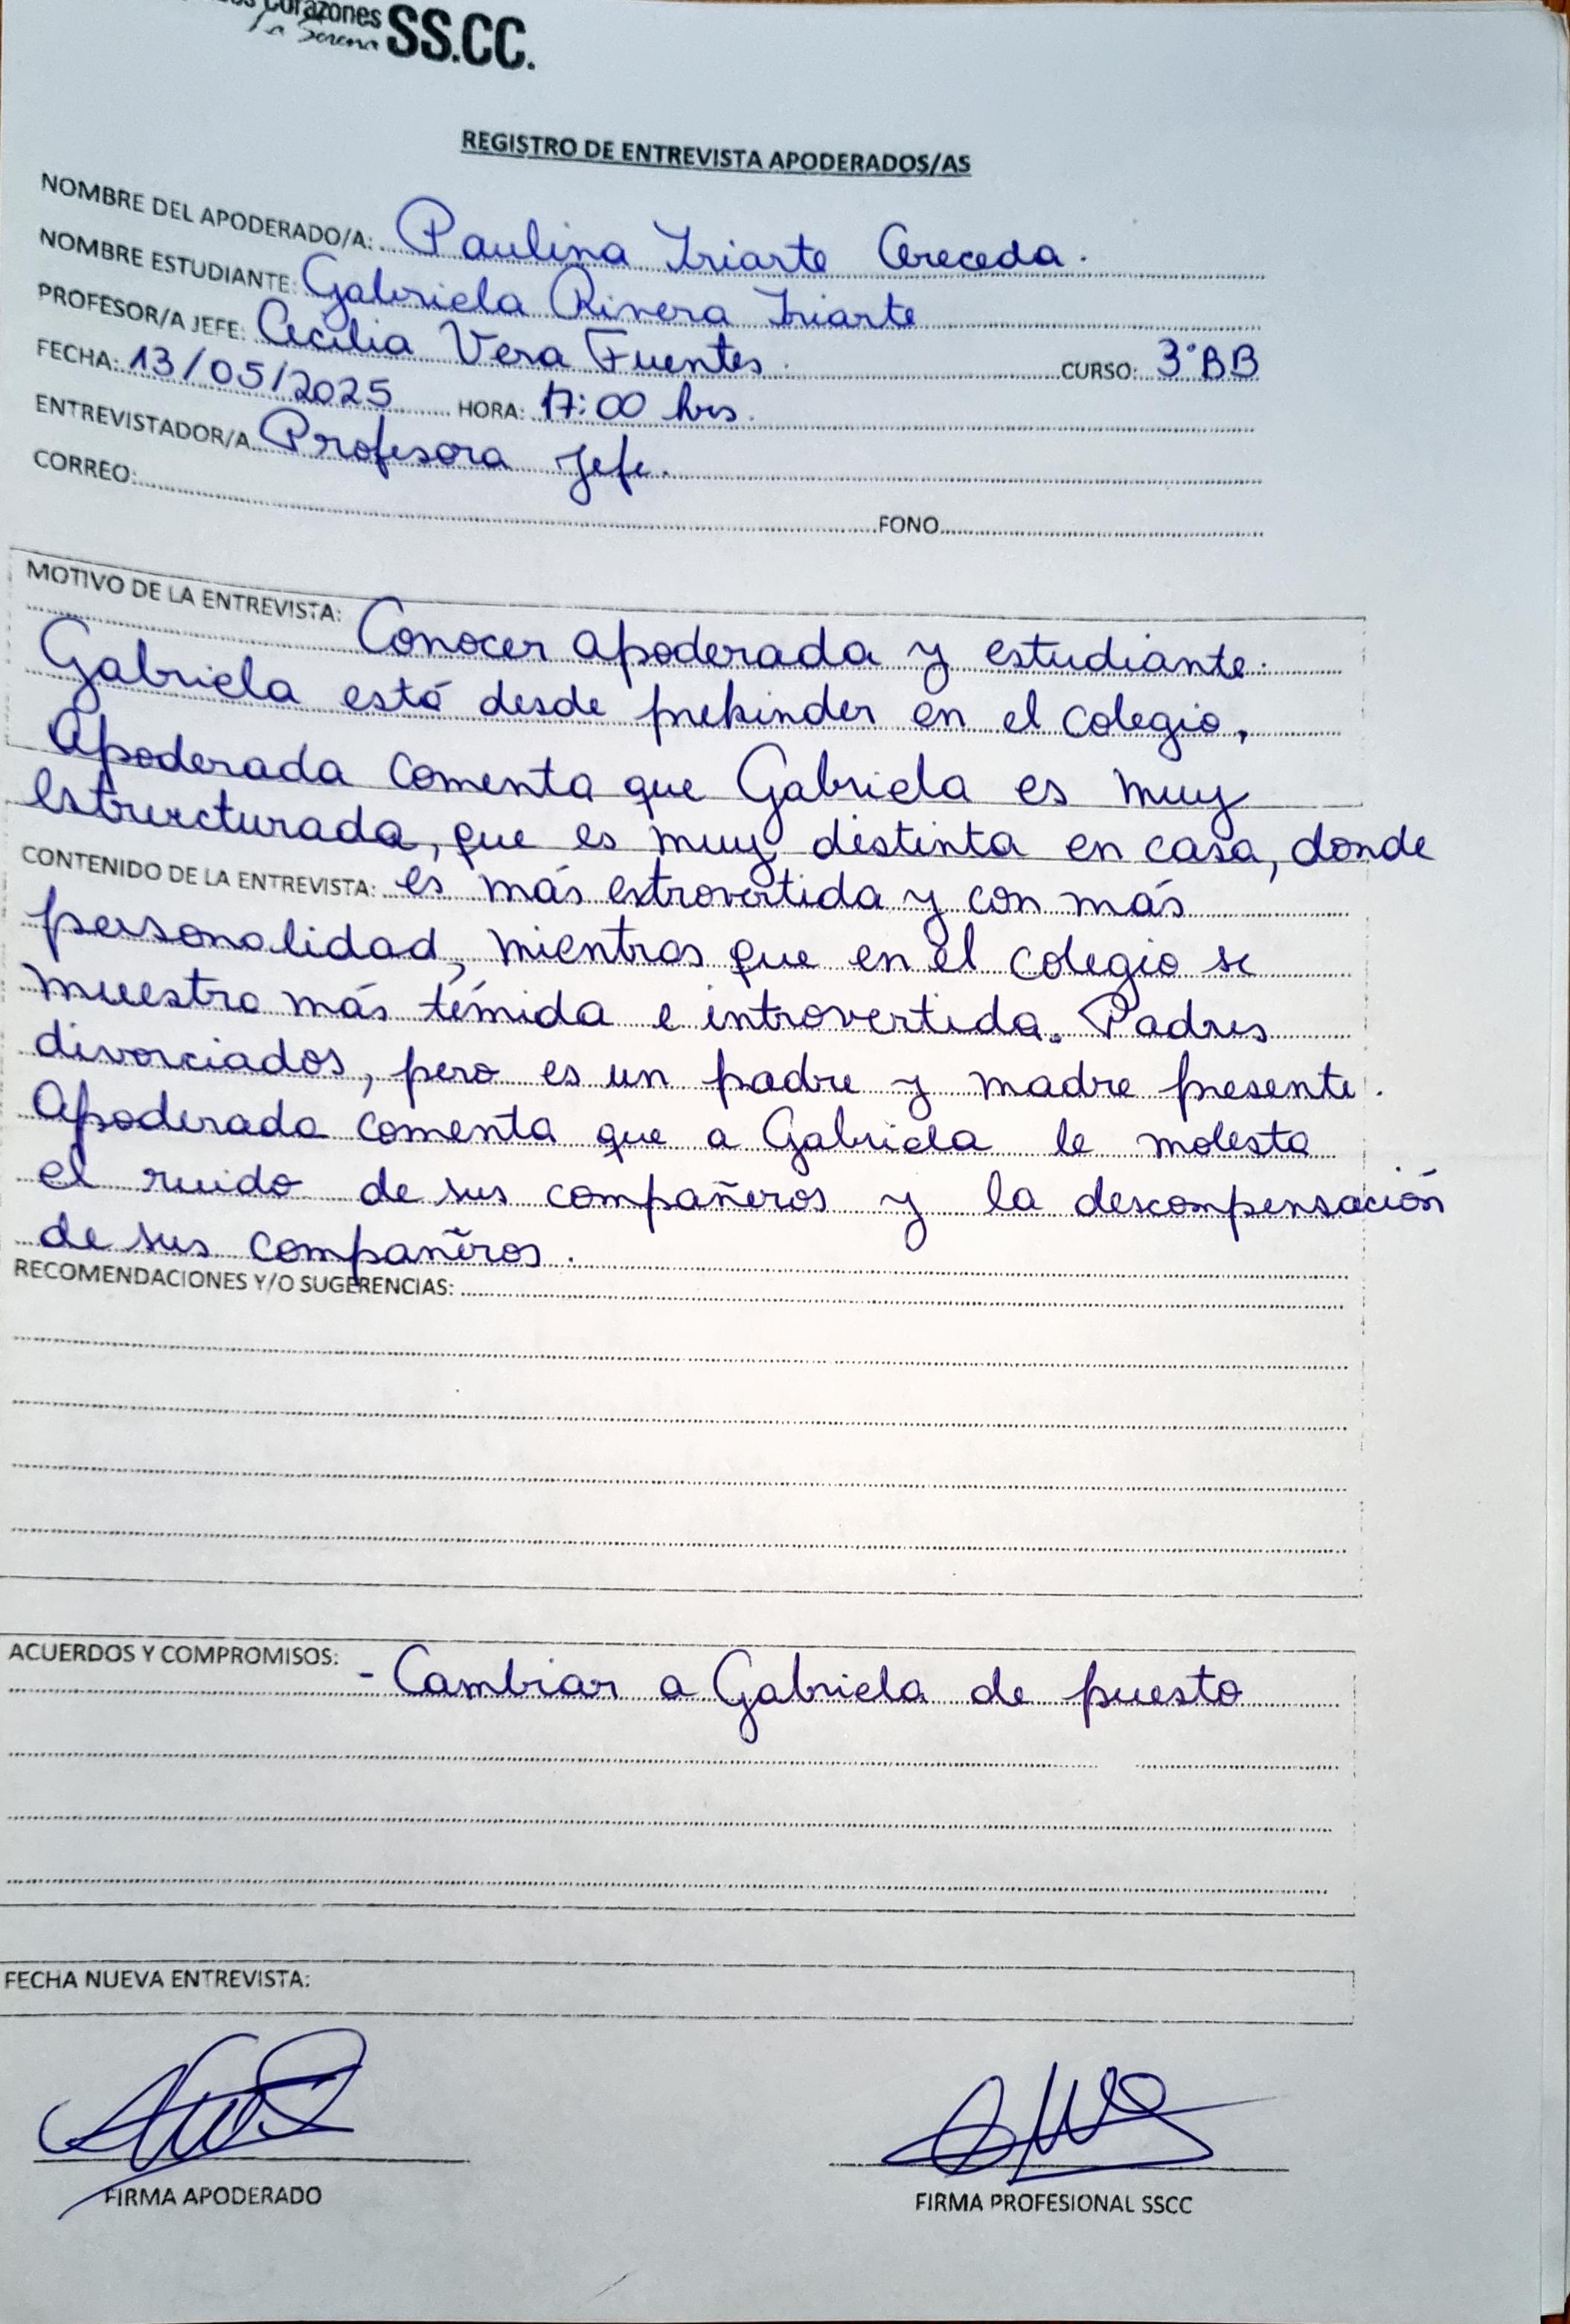 Corazones SS.CC.
La Serena
REGISTRO DE ENTREVISTA APODERADOS/AS
NOMBRE DEL APODERADO/A: Paulina Iriarte Cereceda.
NOMBRE ESTUDIANTE: Gabriela Rivera Iriarte
PROFESOR/A JEFE: Cecilia Vera Fuentes. CURSO: 3°BB
FECHA: 13/05/2025 HORA: 17:00 hrs.
ENTREVISTADOR/A Profesora Jefe.
CORREO: FONO
MOTIVO DE LA ENTREVISTA: Conocer apoderada y estudiante.
Gabriela está desde prekinder en el colegio,
Apoderada comenta que Gabriela es muy
estructurada, que es muy distinta en casa, donde
CONTENIDO DE LA ENTREVISTA: es más extrovertida y con más
personalidad, mientras que en el colegio se
muestra más tímida e introvertida. Padres
divorciados, pero es un padre y madre presente.
Apoderada comenta que a Gabriela le molesta
el ruido de sus compañeros y la descompensación
de sus compañeros.
RECOMENDACIONES Y/O SUGERENCIAS:
ACUERDOS Y COMPROMISOS: - Cambiar a Gabriela de puesto
FECHA NUEVA ENTREVISTA:
FIRMA APODERADO FIRMA PROFESIONAL SSCC